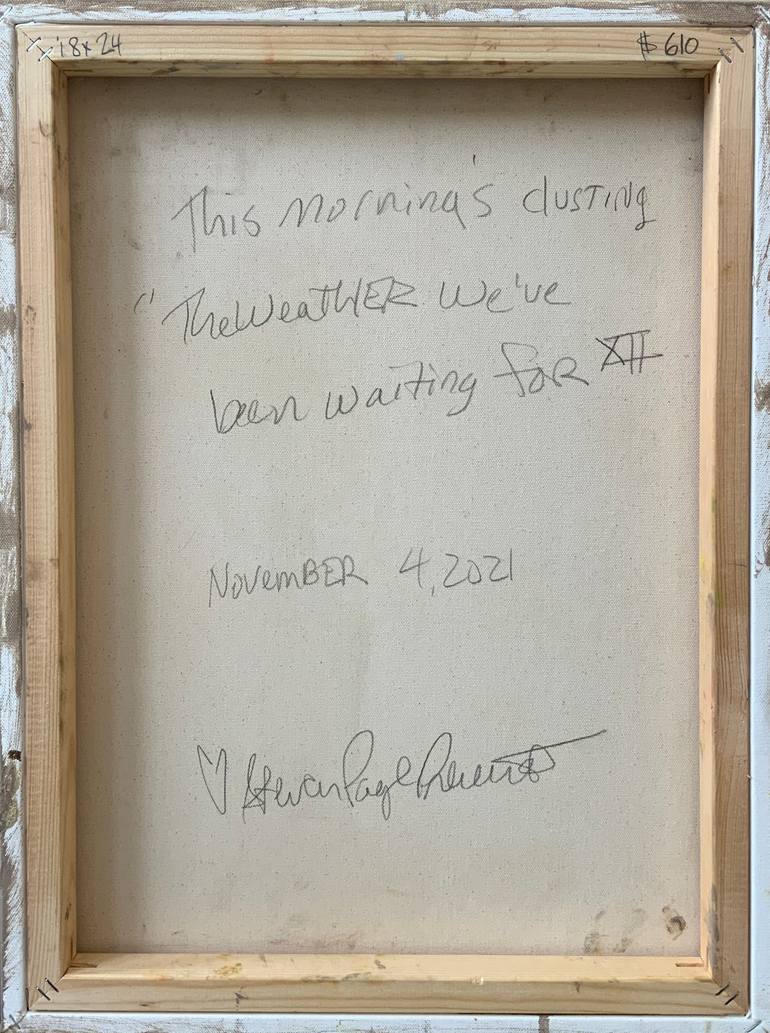 18x24 $610
This Morning's dusting
"TheWeatHER We've
been waiting FOR XII
NovemBER 4, 2021
♡ Steven Page Prewitt